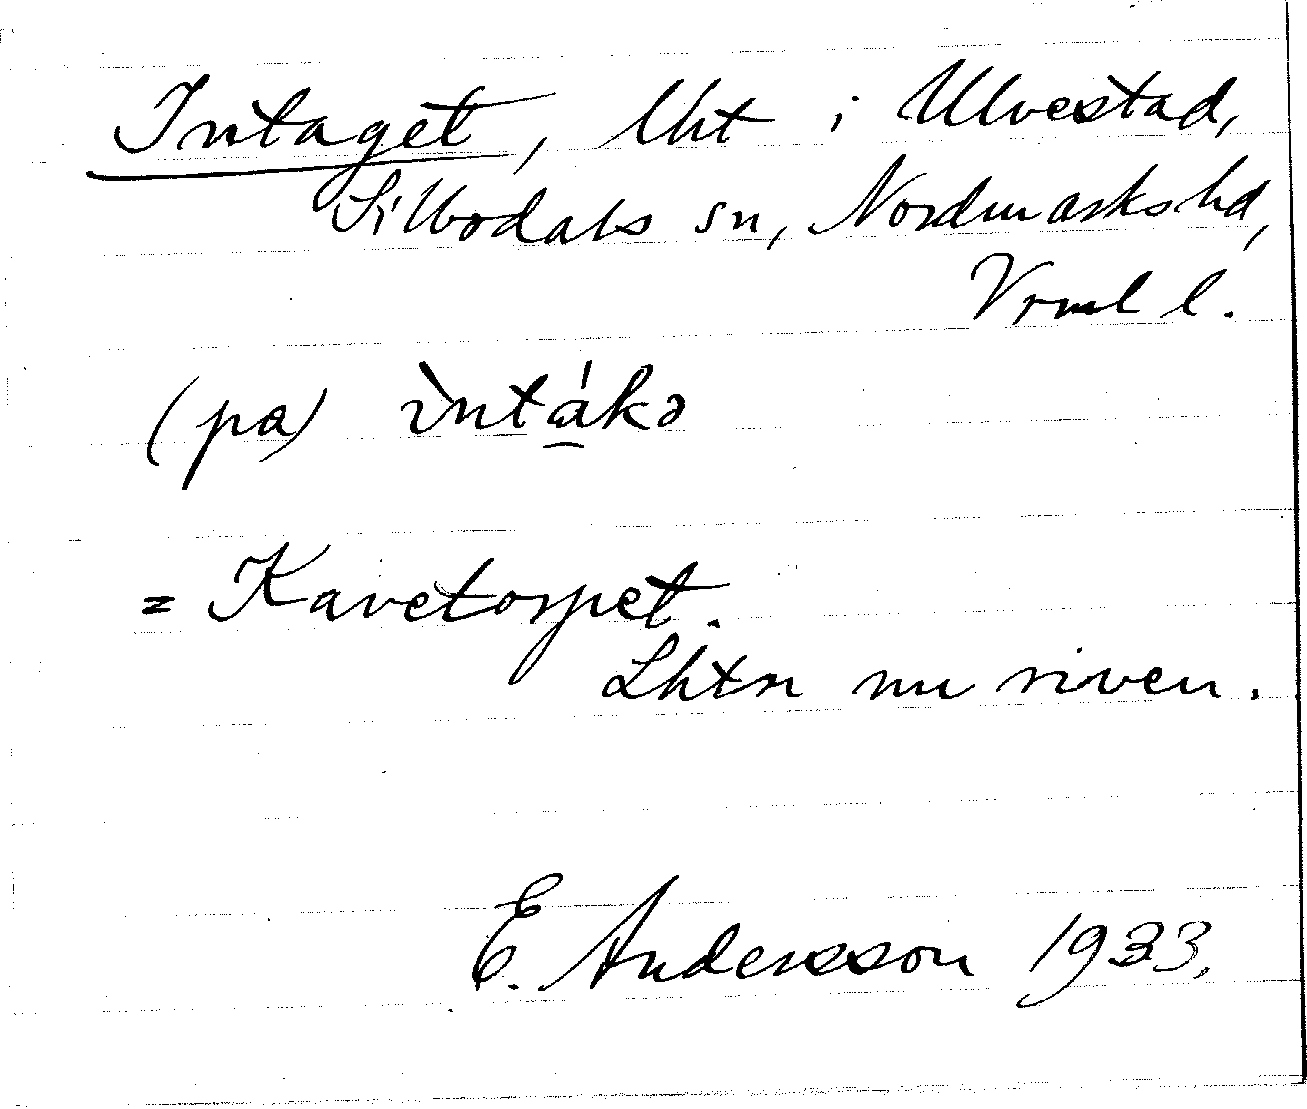 Intaget, lht i Ulvestad,
Silbodals sn, Nordmarks hd,
Vrml l.
(pa) ìntákə
= Kavetorpet.
Lhtn nu riven.
E. Andersson 1933.